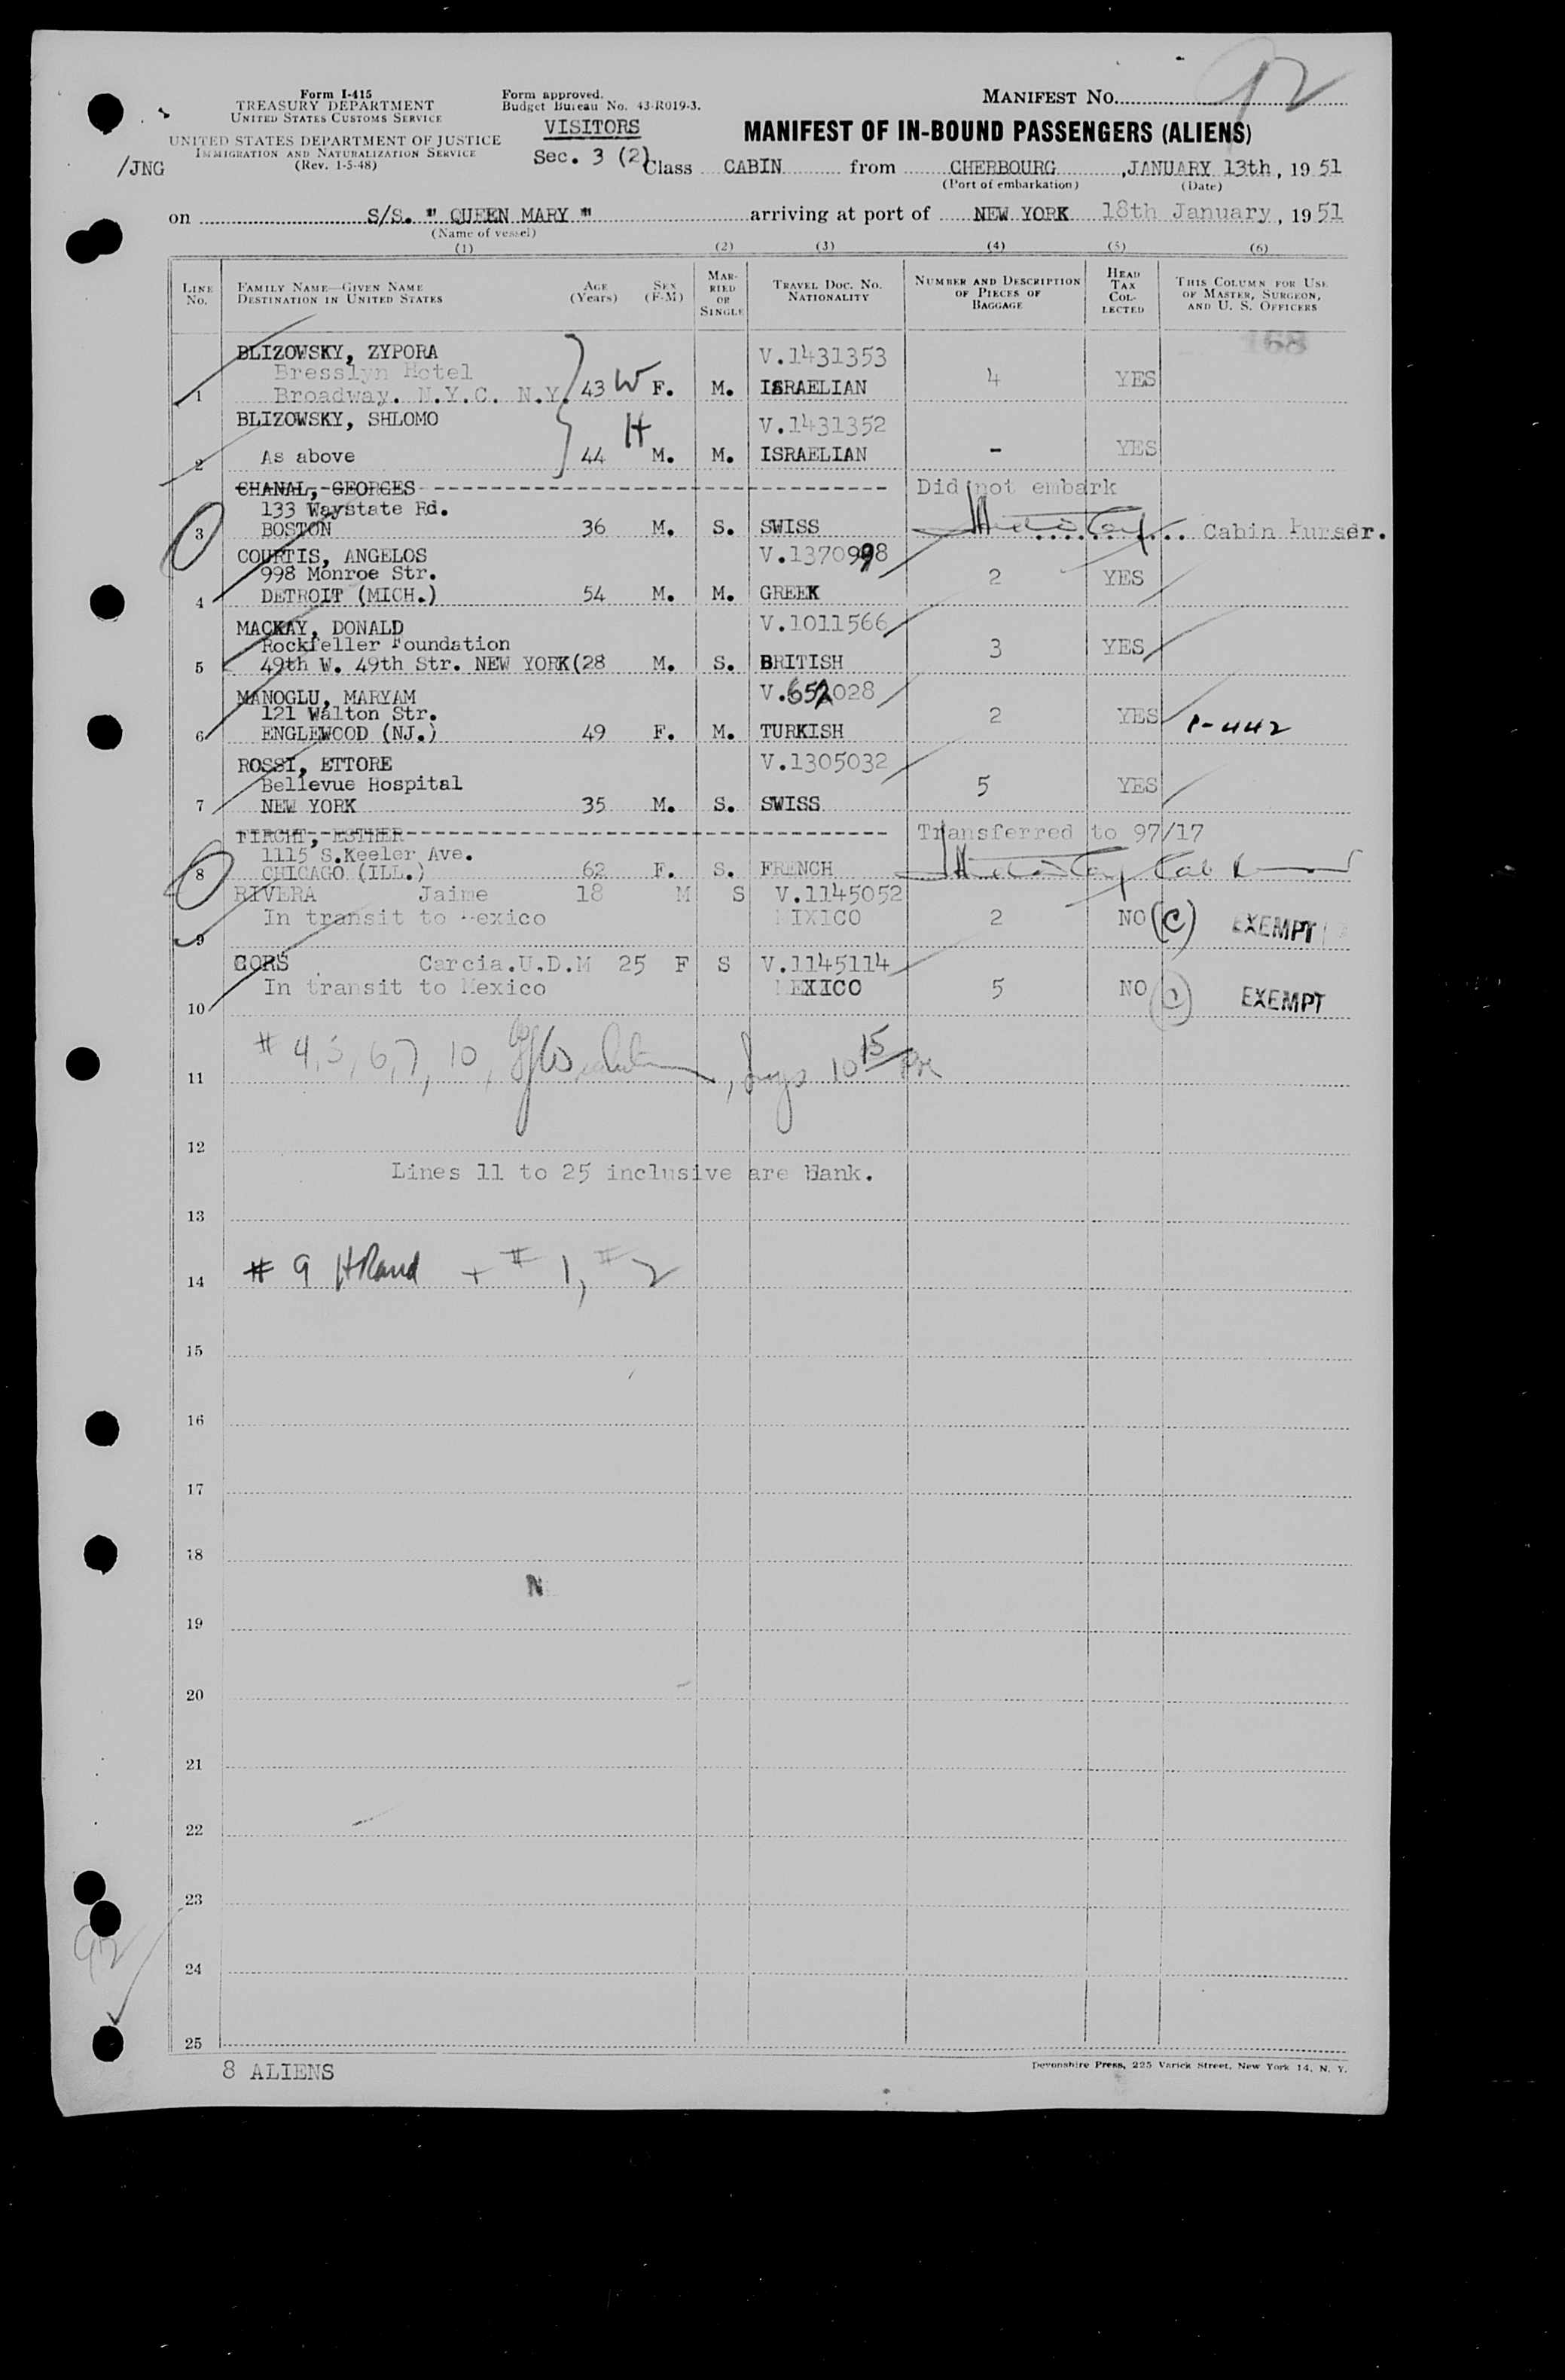 92
Form I-415
TREASURY DEPARTMENT
UNITED STATES CUSTOMS SERVICE
UNITED STATES DEPARTMENT OF JUSTICE
IMMIGRATION AND NATURALIZATION SERVICE
(Rev. 1-5-48)
/JNG
Form approved.
Budget Bureau No. 43-R019-3.
VISITORS
Sec. 3 (2)
MANIFEST NO.
MANIFEST OF IN-BOUND PASSENGERS (ALIENS)
Class CABIN from CHERBOURG, JANUARY 13th, 1951
(Port of embarkation) (Date)
on S/S. " QUEEN MARY " arriving at port of NEW YORK 18th January, 1951
(Name of vessel)
(1) (2) (3) (4) (5) (6)
LINE NO. FAMILY NAME—GIVEN NAME DESTINATION IN UNITED STATES AGE (Years) SEX (F-M) MARRIED OR SINGLE TRAVEL DOC. NO. NATIONALITY NUMBER AND DESCRIPTION OF PIECES OF BAGGAGE HEAD TAX COLLECTED THIS COLUMN FOR USE OF MASTER, SURGEON, AND U. S. OFFICERS
168
BLIZOWSKY, ZYPORA V.1431353
Bresslyn Hotel 4 YES
1 Broadway. N.Y.C. N.Y. 43 W F. M. ISRAELIAN
BLIZOWSKY, SHLOMO H V.1431352
2 As above 44 M. M. ISRAELIAN - YES
CHANAL, GEORGES Did not embark
133 Waystate Rd.
3 BOSTON 36 M. S. SWISS Cabin Purser.
COURTIS, ANGELOS V.1370998
998 Monroe Str. 2 YES
4 DETROIT (MICH.) 54 M. M. GREEK
MACKAY, DONALD V.1011566
Rockfeller Foundation 3 YES
5 49th W. 49th Str. NEW YORK(28 M. S. BRITISH
MANOGLU, MARYAM V.652028
121 Walton Str. 2 YES 1-442
6 ENGLEWOOD (NJ.) 49 F. M. TURKISH
ROSSI, ETTORE V.1305032
Bellevue Hospital 5 YES
7 NEW YORK 35 M. S. SWISS
FIRCHT, ESTHER Transferred to 97/17
1115 S.Keeler Ave.
8 CHICAGO (ILL.) 62 F. S. FRENCH
RIVERA Jaime 18 M S V.1145052
In transit to Mexico MIXICO 2 NO (C) EXEMPT
9
GORS Carcia.U.D.M 25 F S V.1145114
In transit to Mexico MEXICO 5 NO EXEMPT
10
# 4, 5, 6, 7, 10, 10 15
11
12
Lines 11 to 25 inclusive are blank.
13
# 9 HRand + # 1, # 2
14
15
16
17
18
N
19
20
21
22
23
92
24
25
8 ALIENS
Devonshire Press, 225 Varick Street, New York 14, N. Y.